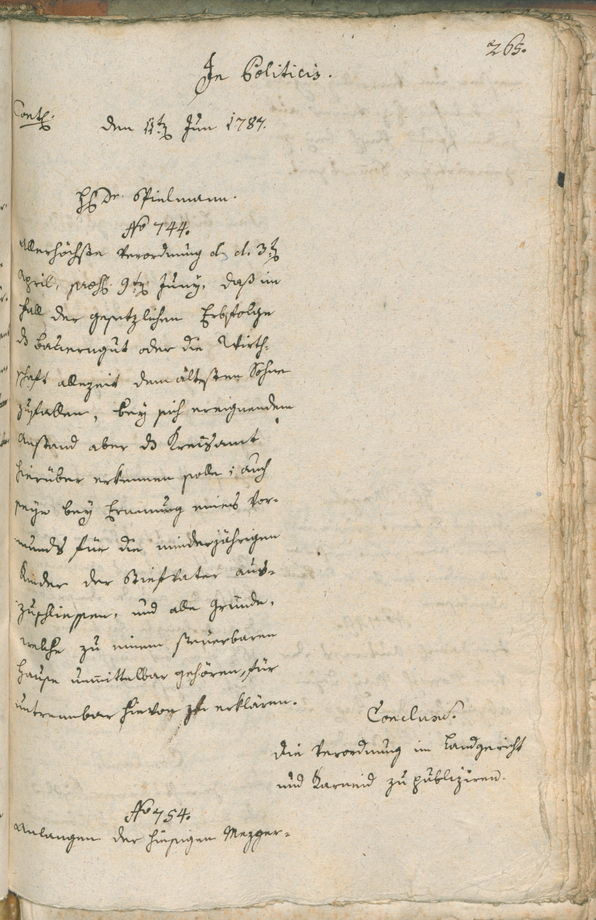 265.
In Politicis.
Cont.
den 11t Jun 1787.
H Dr. Spielmann.
No 744.
Allerhöchste Verordnung d. d. 3t
April, præs. 9t Juny, daß im
Fall der gesetzlichen Erbfolge
ds Bauerngut oder die Wirth-
schaft allezeit dem ältesten Sohne
zufallen, bey sich ereignendem
Anstand aber ds Kreisamt
hierüber erkennen solle; auch
seye bey Ernennung eines Vor-
munds für die minderjährigen
Kinder der Stiefvater aus-
zuschliessen, und alle Gründe,
welche zu einem steuerbaren
Hause unmittelbar gehören, für
untrennbar hievon zu erklären.
Conclus.
Die Verordnung im Landgericht
und Karneid zu publiziren.
No 754.
Anlangen der hiesigen Mezger-